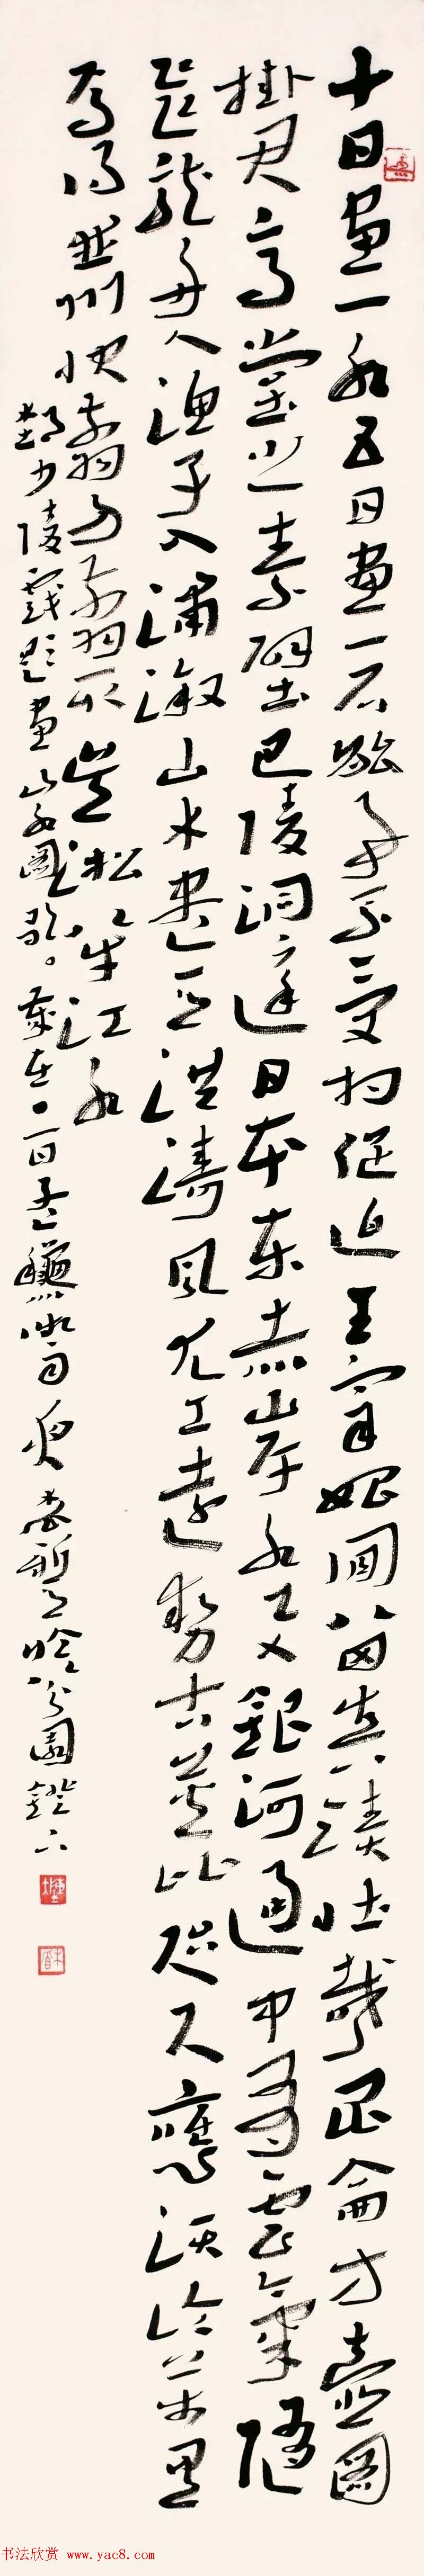 十日畫一水五日畫一石能事不受相促迫王宰始肯留真蹟壯哉崑侖方壺圖
掛君高堂之素壁巴陵洞庭日本東赤岸水與銀河通中有雲氣隨
飛龍舟人漁子入浦溆山木盡亞洪濤風尤工遠勢古莫比咫尺應須論萬里
焉得并州快剪刀剪取吴松半江水
杜少陵戲題畫山水圖歌。歲在 園鐙下
书法欣赏 www.yac8.com